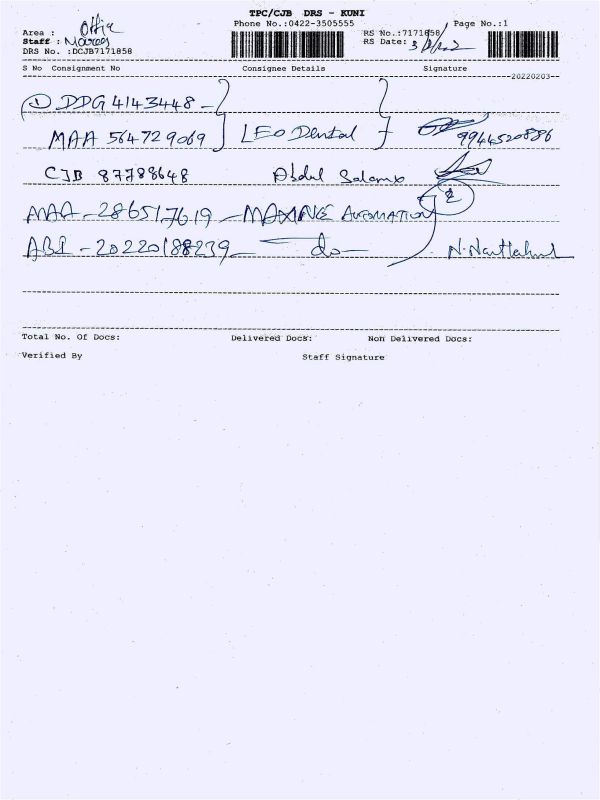 TPC/CJB DRS - KUNI
Phone No.:0422-3505555 Page No.:1
Area : Offie RS No.:7171858
Staff : RS Date: 3/2/22
DRS No. :DCJB7171858
S No Consignment No Consignee Details Signature
20220203
1 DDG 4143448 -
MAA 564729069 LEO Dental 9944520886
CJB 87788648 Abdul Salam
MAA - 286517619 - AUTOMATION 2
ABI - 20220188239 - do -
Total No. Of Docs: Delivered Docs: Non Delivered Docs:
Verified By Staff Signature